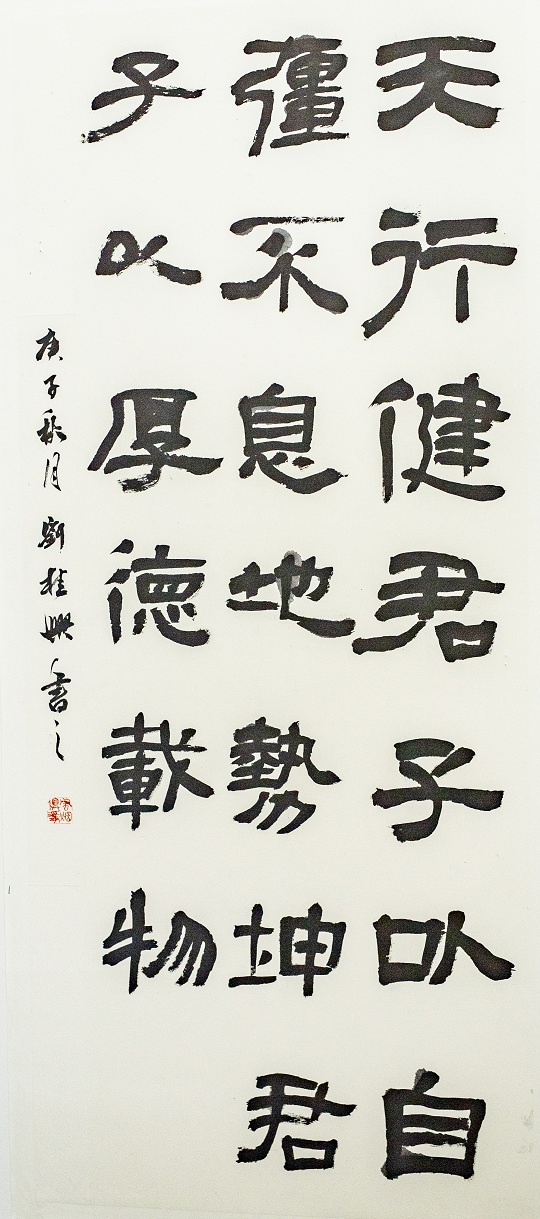 天行健君子以自
彊不息地勢坤君
子以厚德載物
庚子秋月劉桂興書之